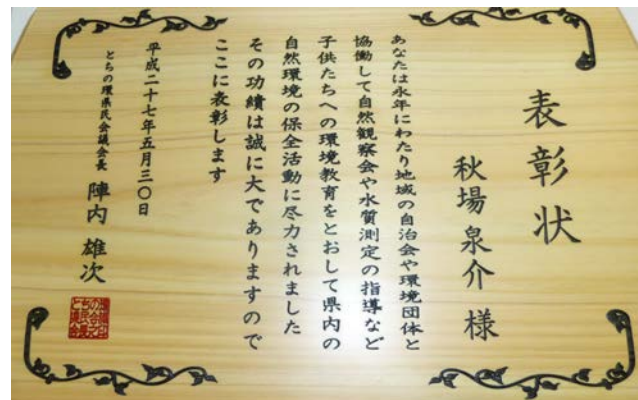 表彰状
秋場泉介 様
あなたは永年にわたり地域の自治会や環境団体と
協働して自然観察会や水質測定の指導など
子供たちへの環境教育をとおして県内の
自然環境の保全活動に尽力されました
その功績は誠に大でありますので
ここに表彰します
平成二十七年五月三〇日
とちの環県民会議会長 陣内 雄次